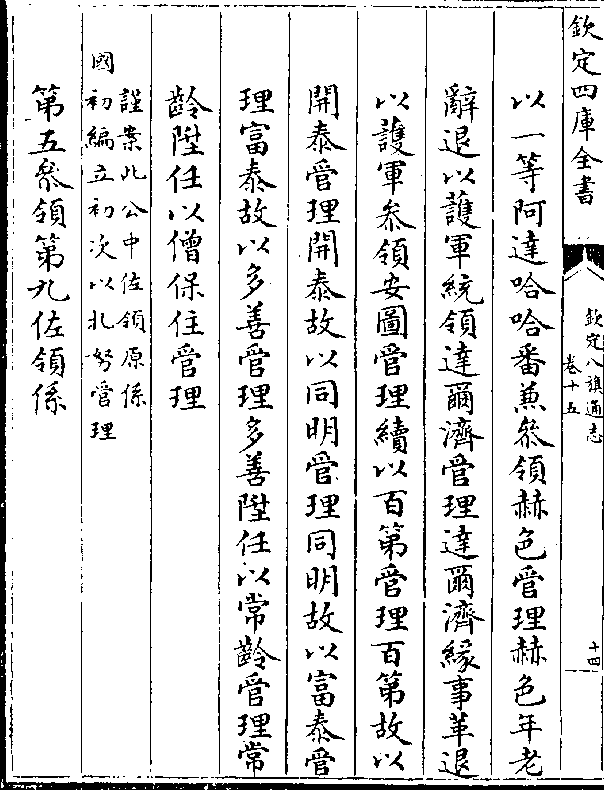 欽定四庫全書
欽定八旗通志
卷十五
十四
以一等阿達哈哈番兼叅領赫色管理赫色年老
辭退以護軍統領達爾濟管理達爾濟緣事革退
以護軍叅領安圖管理續以百第管理百第故以
開泰管理開泰故以同明管理同明故以富泰管
理富泰故以多善管理多善陞任以常齡管理常
齡陞任以僧保住管理
謹案此公中佐領原係
國初編立初次以扎努管理
第五叅領第九佐領係